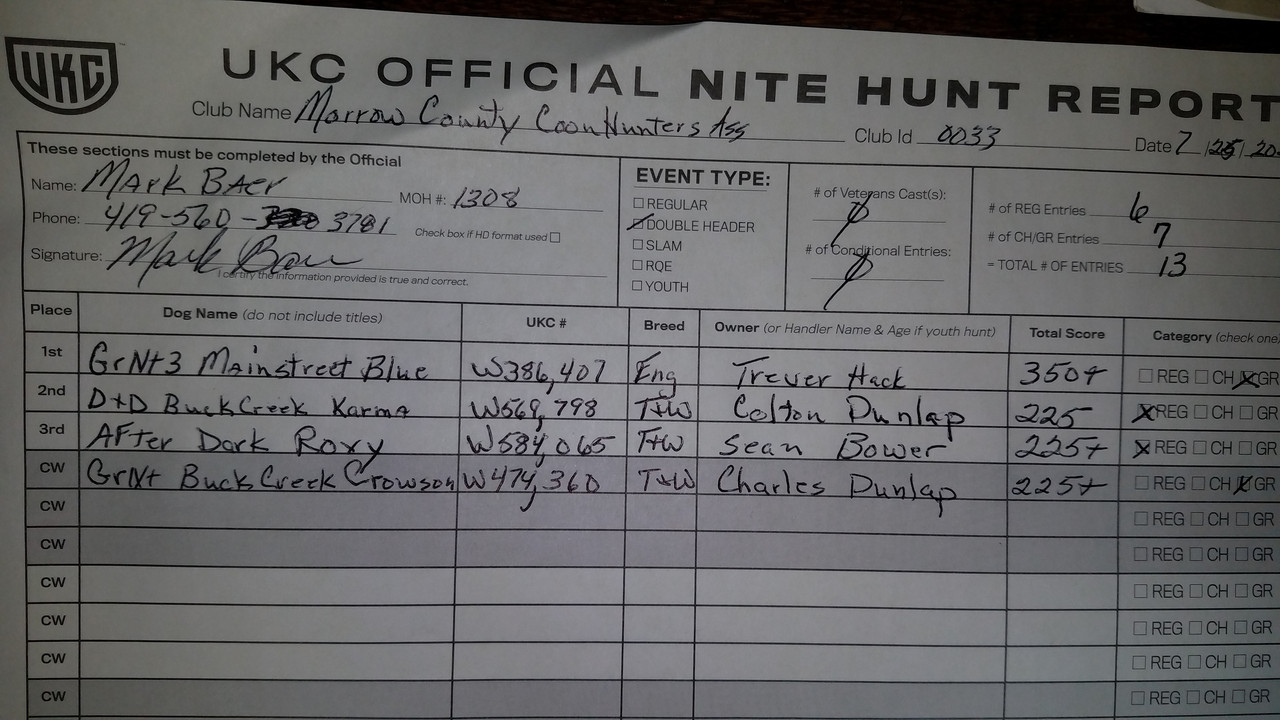 UKC
UKC OFFICIAL NITE HUNT REPORT
Club Name Morrow County CoonHunters Ass Club Id 0033 Date 7 /25/ 20
These sections must be completed by the Official
Name: MArk BAer MOH #: 1308
Phone: 419-560- 3781 Check box if HD format used ☐
Signature: Mark Baer
I certify the information provided is true and correct.
EVENT TYPE:
☐ REGULAR
☑ DOUBLE HEADER
☐ SLAM
☐ RQE
☐ YOUTH
# of Veterans Cast(s):
∅
# of Conditional Entries:
∅
# of REG Entries 6
# of CH/GR Entries 7
= TOTAL # OF ENTRIES 13
Place Dog Name (do not include titles) UKC # Breed Owner (or Handler Name & Age if youth hunt) Total Score Category (check one
1st GrNt3 Mainstreet Blue W386,407 Eng Trever Hack 350+ ☐ REG ☐ CH ☒ GR
2nd D+D BuckCreek Karma W569,798 T+W Colton Dunlap 225 ☒ REG ☐ CH ☐ GR
3rd AFter Dark Roxy W584,065 T+W Sean Bower 225+ ☒ REG ☐ CH ☐ GR
CW GrNt BuckCreek Crowson W474,360 T+W Charles Dunlap 225+ ☐ REG ☐ CH ☒ GR
CW ☐ REG ☐ CH ☐ GR
CW ☐ REG ☐ CH ☐ GR
CW ☐ REG ☐ CH ☐ GR
CW ☐ REG ☐ CH ☐ GR
CW ☐ REG ☐ CH ☐ GR
CW ☐ REG ☐ CH ☐ GR